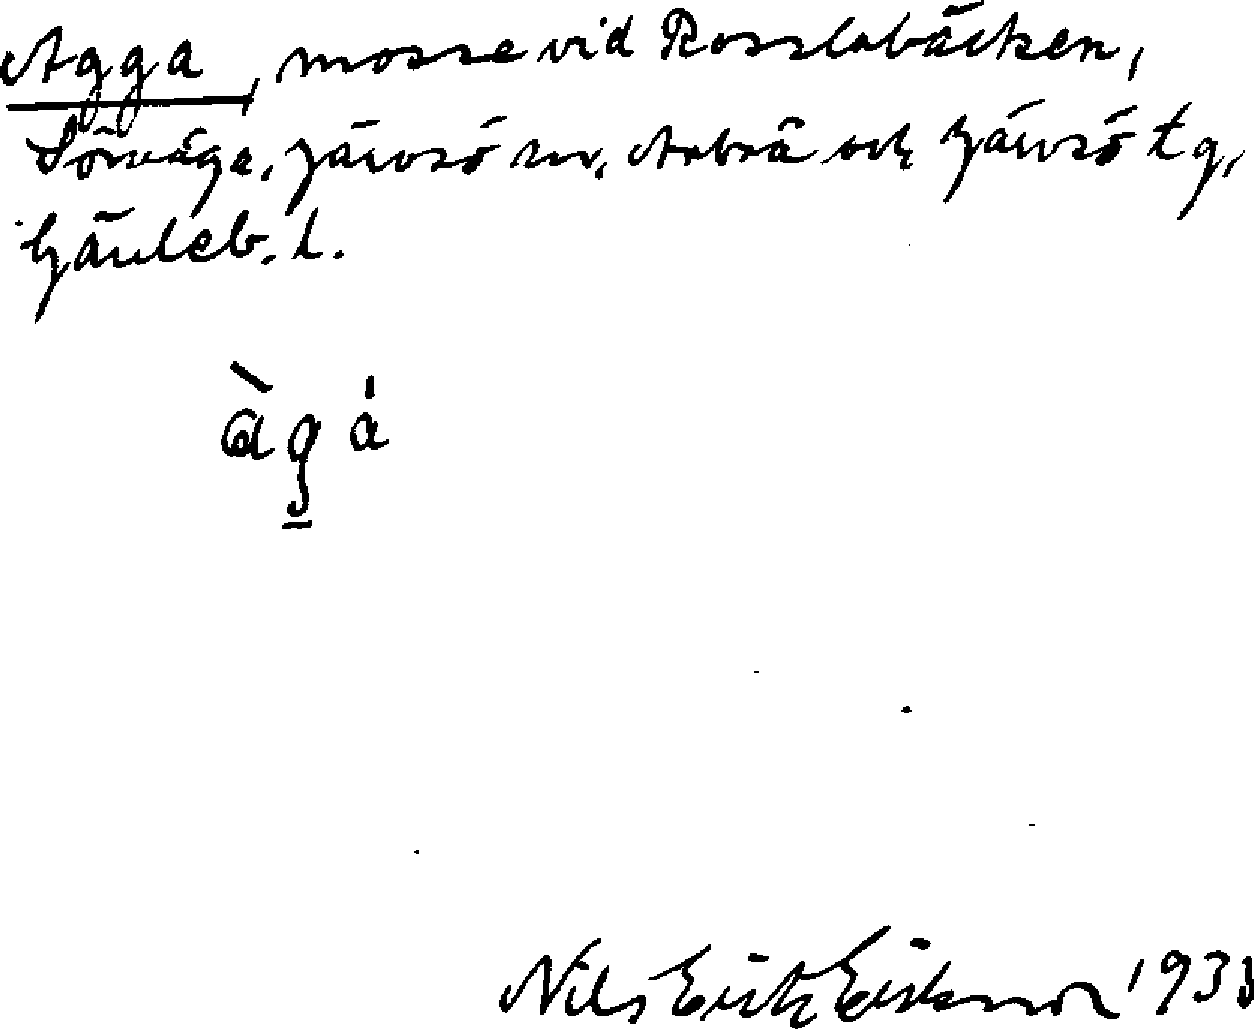 Agga, mosse vid Rosslabäcken,
Sörväga, Järvsö sn, Arbrå och Järvsö tg,
Gävleb. l.
àgá
Nils Erik Eriksson 1933